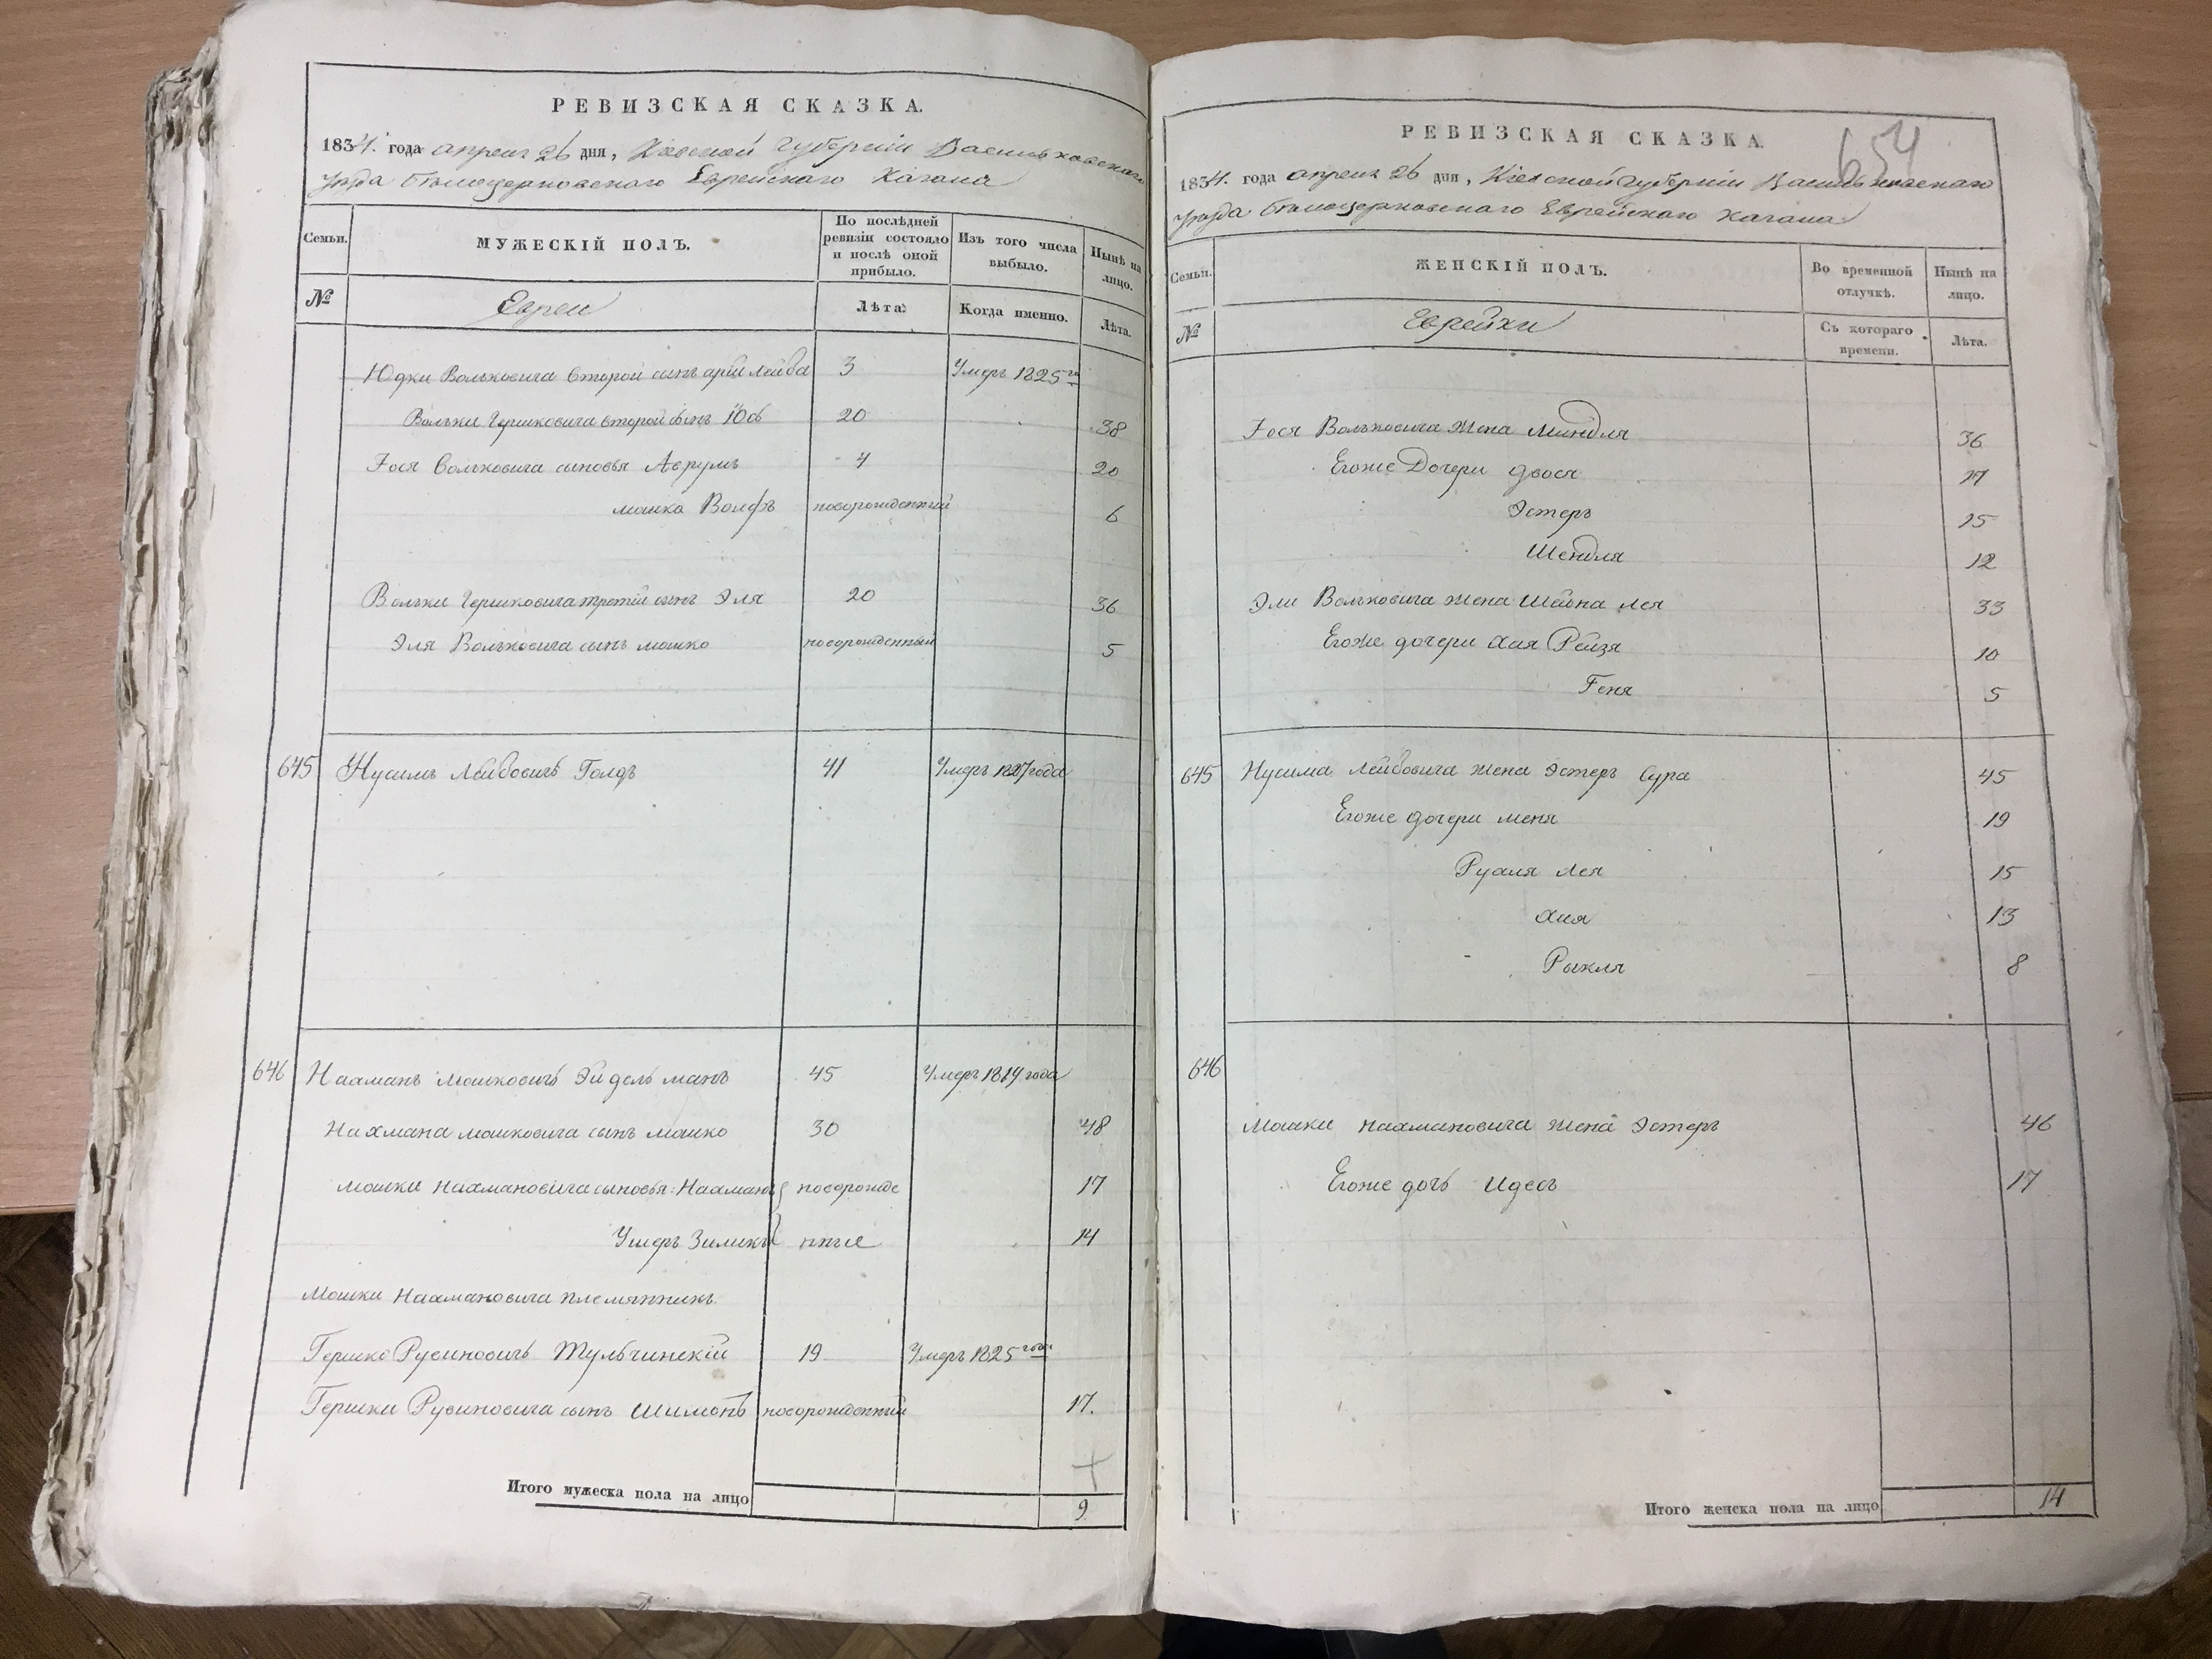 РЕВИЗСКАЯ СКАЗКА.
1834. года апреля 26 дня, Киевской Губернiи Васильковскаго
уезда Белоцерковского Еврейского Кагала
Семьи.
МУЖЕСКІЙ ПОЛЪ.
По послѣдней ревизіи состояло и послѣ оной прибыло.
Изъ того числа выбыло.
Нынѣ на лицо.
№
Евреи
Лѣта.
Когда именно.
Лѣта.
Юдки Вольковича второй сынъ Арiй Лейба 3 Умеръ 1825го
Вольки Гершковича второй сынъ Iось 20 38
Iося Вольковича сыновья Аврумъ 4 20
мошко Волфъ новорожденный 6
Вольки Гершковича третiй сынъ Эля 20 36
Эля Вольковича сынъ мошко новорожденный 5
645 Нусимъ Лейбовичъ Голдъ 41 Умеръ 1827 года
646 Нахманъ мошковичъ Эйдельманъ 45 Умеръ 1819 года
Нахмана мошковича сынъ мошко 30 48
мошки Нахмановича сыновья: Нахманъ новорожде 17
Умеръ Зиликъ нные 14
Мошки Нахмановича племянникъ
Гершко Рувиновичъ Тульчинскiй 19 Умеръ 1825 года
Гершки Рувиновича сынъ Шимонъ новорожденный 17.
Итого мужеска пола на лицо 9
654
РЕВИЗСКАЯ СКАЗКА.
1834. года апреля 26 дня, Киевской Губернiи Васильковскаго
уезда Белоцерковского Еврейского Кагала
Семьи.
ЖЕНСКІЙ ПОЛЪ.
Во временной отлучкѣ.
Нынѣ на лицо.
№
Еврейки
Съ котораго времени.
Лѣта.
Iося Вольковича жена Миндля 36
Егоже Дочери двося 17
Эстеръ 15
Шендля 12
Эли Вольковича жена Шейна Лея 33
Егоже дочери Хая Рейзя 10
Геня 5
645 Нусима Лейбовича жена Эстеръ Сура 45
Егоже дочери меня 19
Рухля Лея 15
Хая 13
Рыкля 8
646
Мошки нахмановича жена Эстеръ 46
Егоже дочь Идесъ 17
Итого женска пола на лицо 14